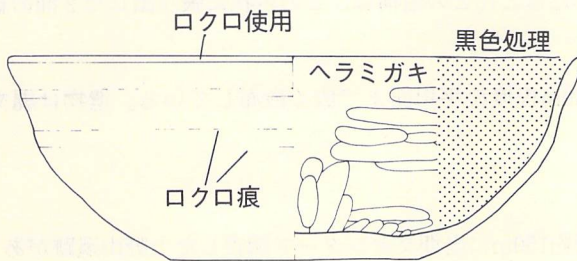 ロクロ使用
黒色処理
ヘラミガキ
ロクロ痕